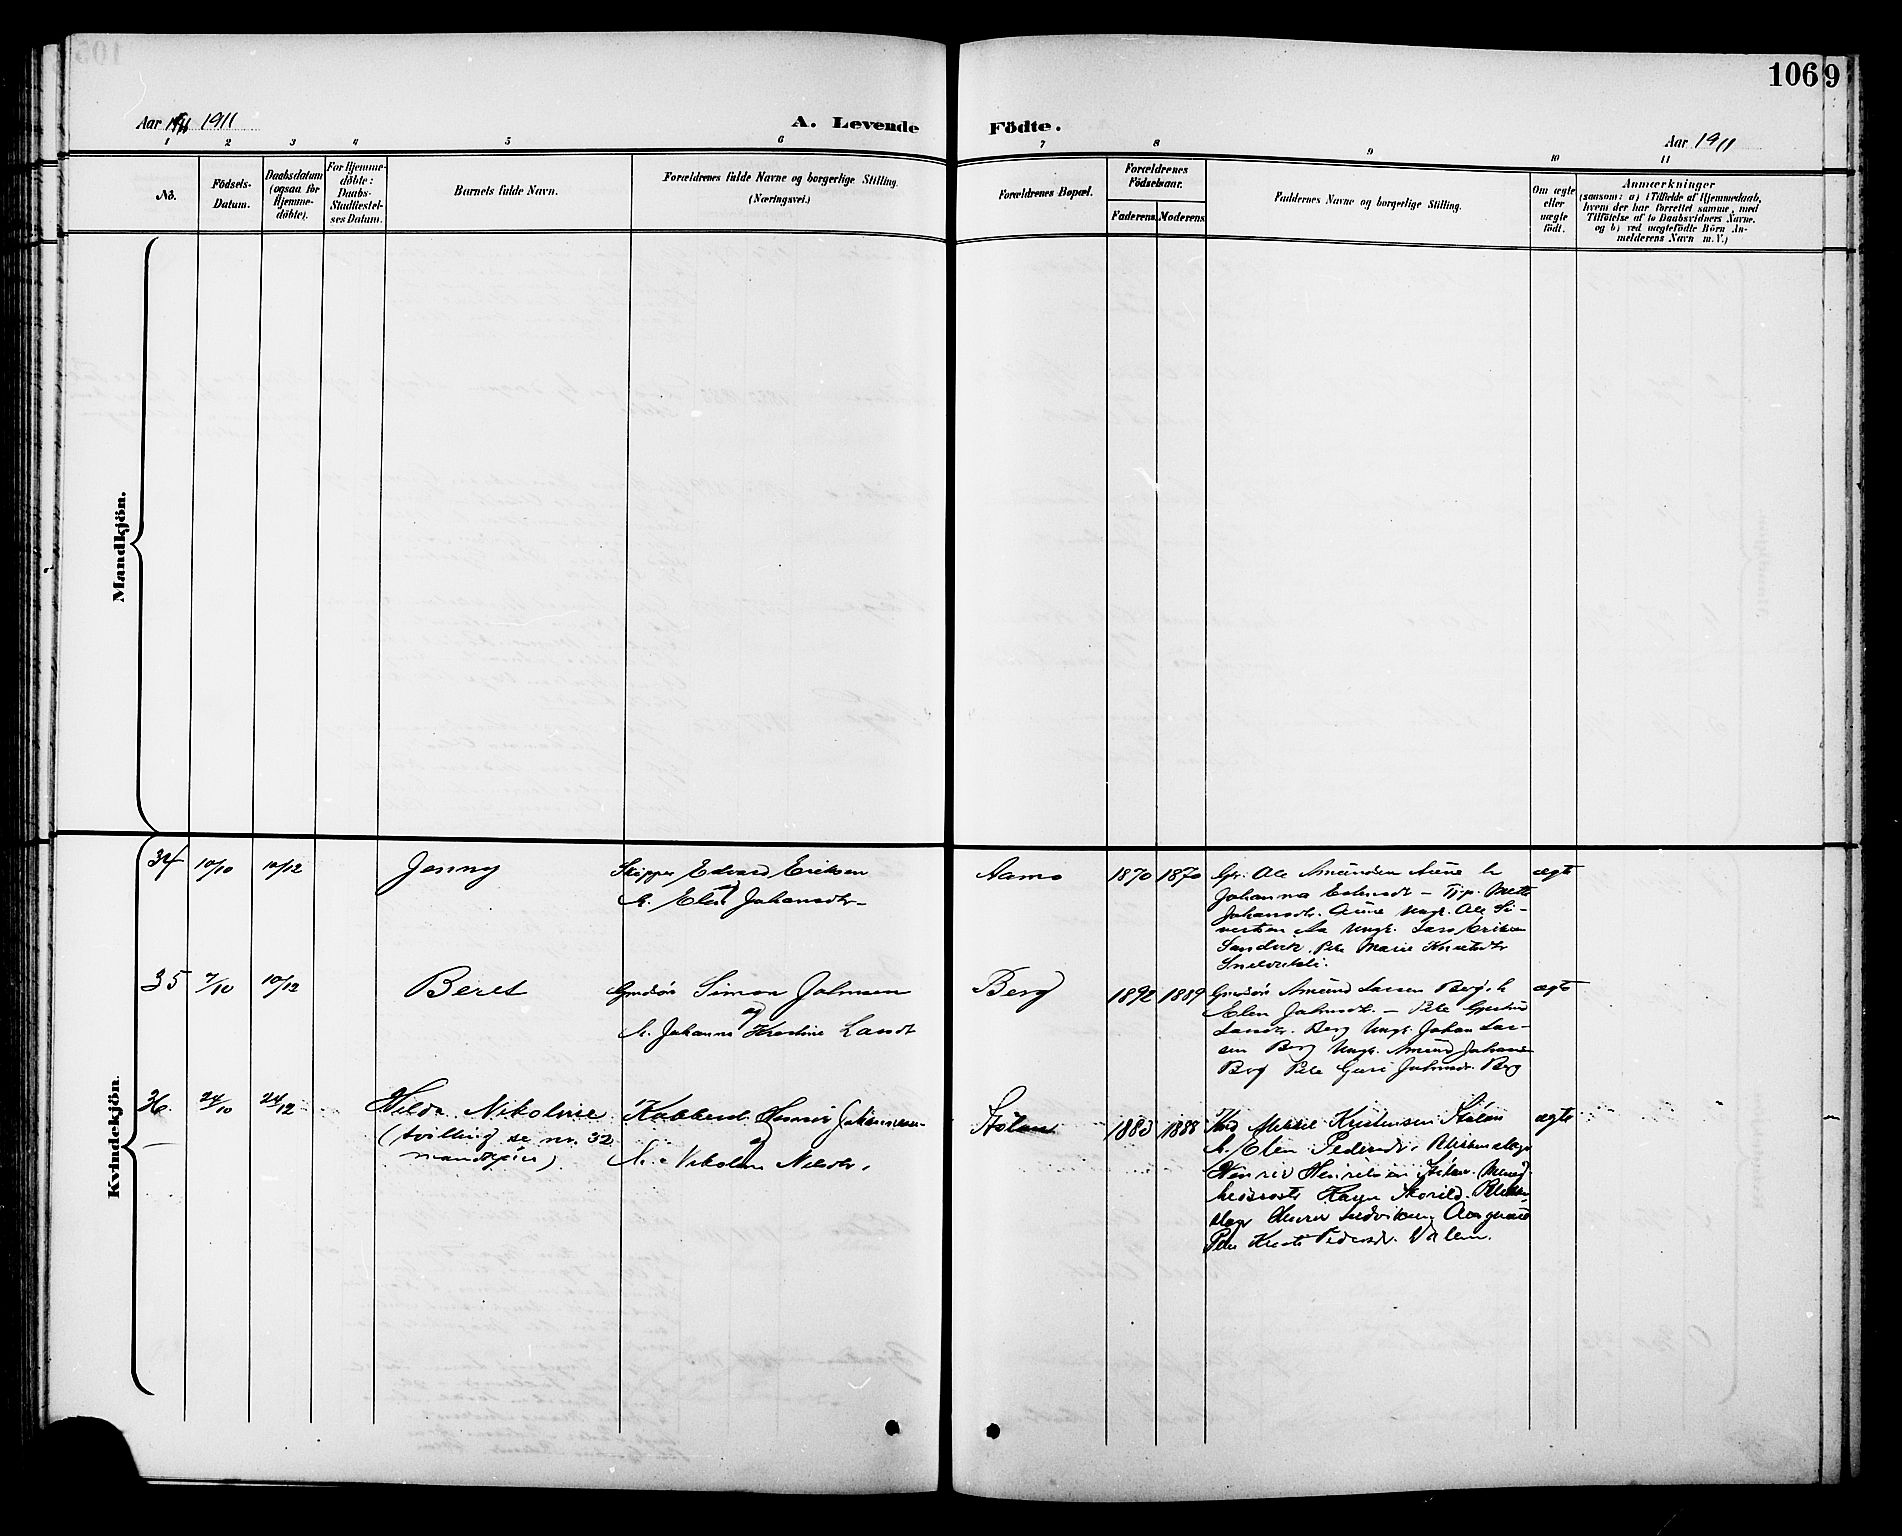 106
9
Aar 1911
A. Levende
Födte.
Aar 1911
1 2 3 4 5 6 7 8 9 10 11
No.
Födsels-
Datum.
Daabsdatum
(ogsaa for
Hjemme-
døbte).
For Hjemme-
döbte:
Daabs-
Stadfæstel-
ses Datum.
Barnets fulde Navn.
Forældrenes fulde Navne og borgerlige Stilling.
(Næringsvei.)
Forældrenes Bopæl.
Forældrenes
Födselsaar.
Faderens. Moderens.
Faddernes Navne og borgerlige Stilling.
Om ægte
eller
uægte
födt.
Anmærkninger
(saasom: a) i Tilfælde af Hjemmedaab,
hvem der har forrettet samme, med
Tilföielse af to Daabsvidners Navne.
og b) ved uægtefödte Börn An-
melderens Navn m. V.)
Mandkjön.
Kvindekjön.
34 10/10 10/12 Jenny
Skipper Edvard Eriksen
og
h. Elen Johansdtr.
Aamo 1870 1870
Gr. Ole Amundsen Aune h
Johanna Estensdtr - Tj.p. Mette
Johansdtr. Aune Ungk. Ole Si-
vertsen Aa Ungk. Lars Eriksen
Sandvik. Pike Marie Knutsdtr
ægte
35 7/10 10/12 Beret
Grdsön Simon Johnsen
og
h. Johanna Kristine Larsdtr
Berg 1892 1889
Grdsön Amund Larsen Berg h
Elen Johnsdtr. - Pike Gjertrud
Larsdtr. Berg Ungk. Johan Lar-
sen Berg Ungk. Amund Johansen
Berg Pike Guri Johnsdr. Berg
ægte
36. 24/10 24/12 Hilda Nikoline
(tvilling se nr. 32
mandkjön)
Henrik Johannesen
og
h. Nikoline Nilsdtr.
Stölan 1883 1888
Mikkel Kristensen Stölan
h. Elen Pedersdr. Blikkenslager
Henrik Henriksen Stölan.
Karen Skorild. Blikken-
slager Ludviksen Aasgaard
Pike Pedersdr. Valen.
ægte